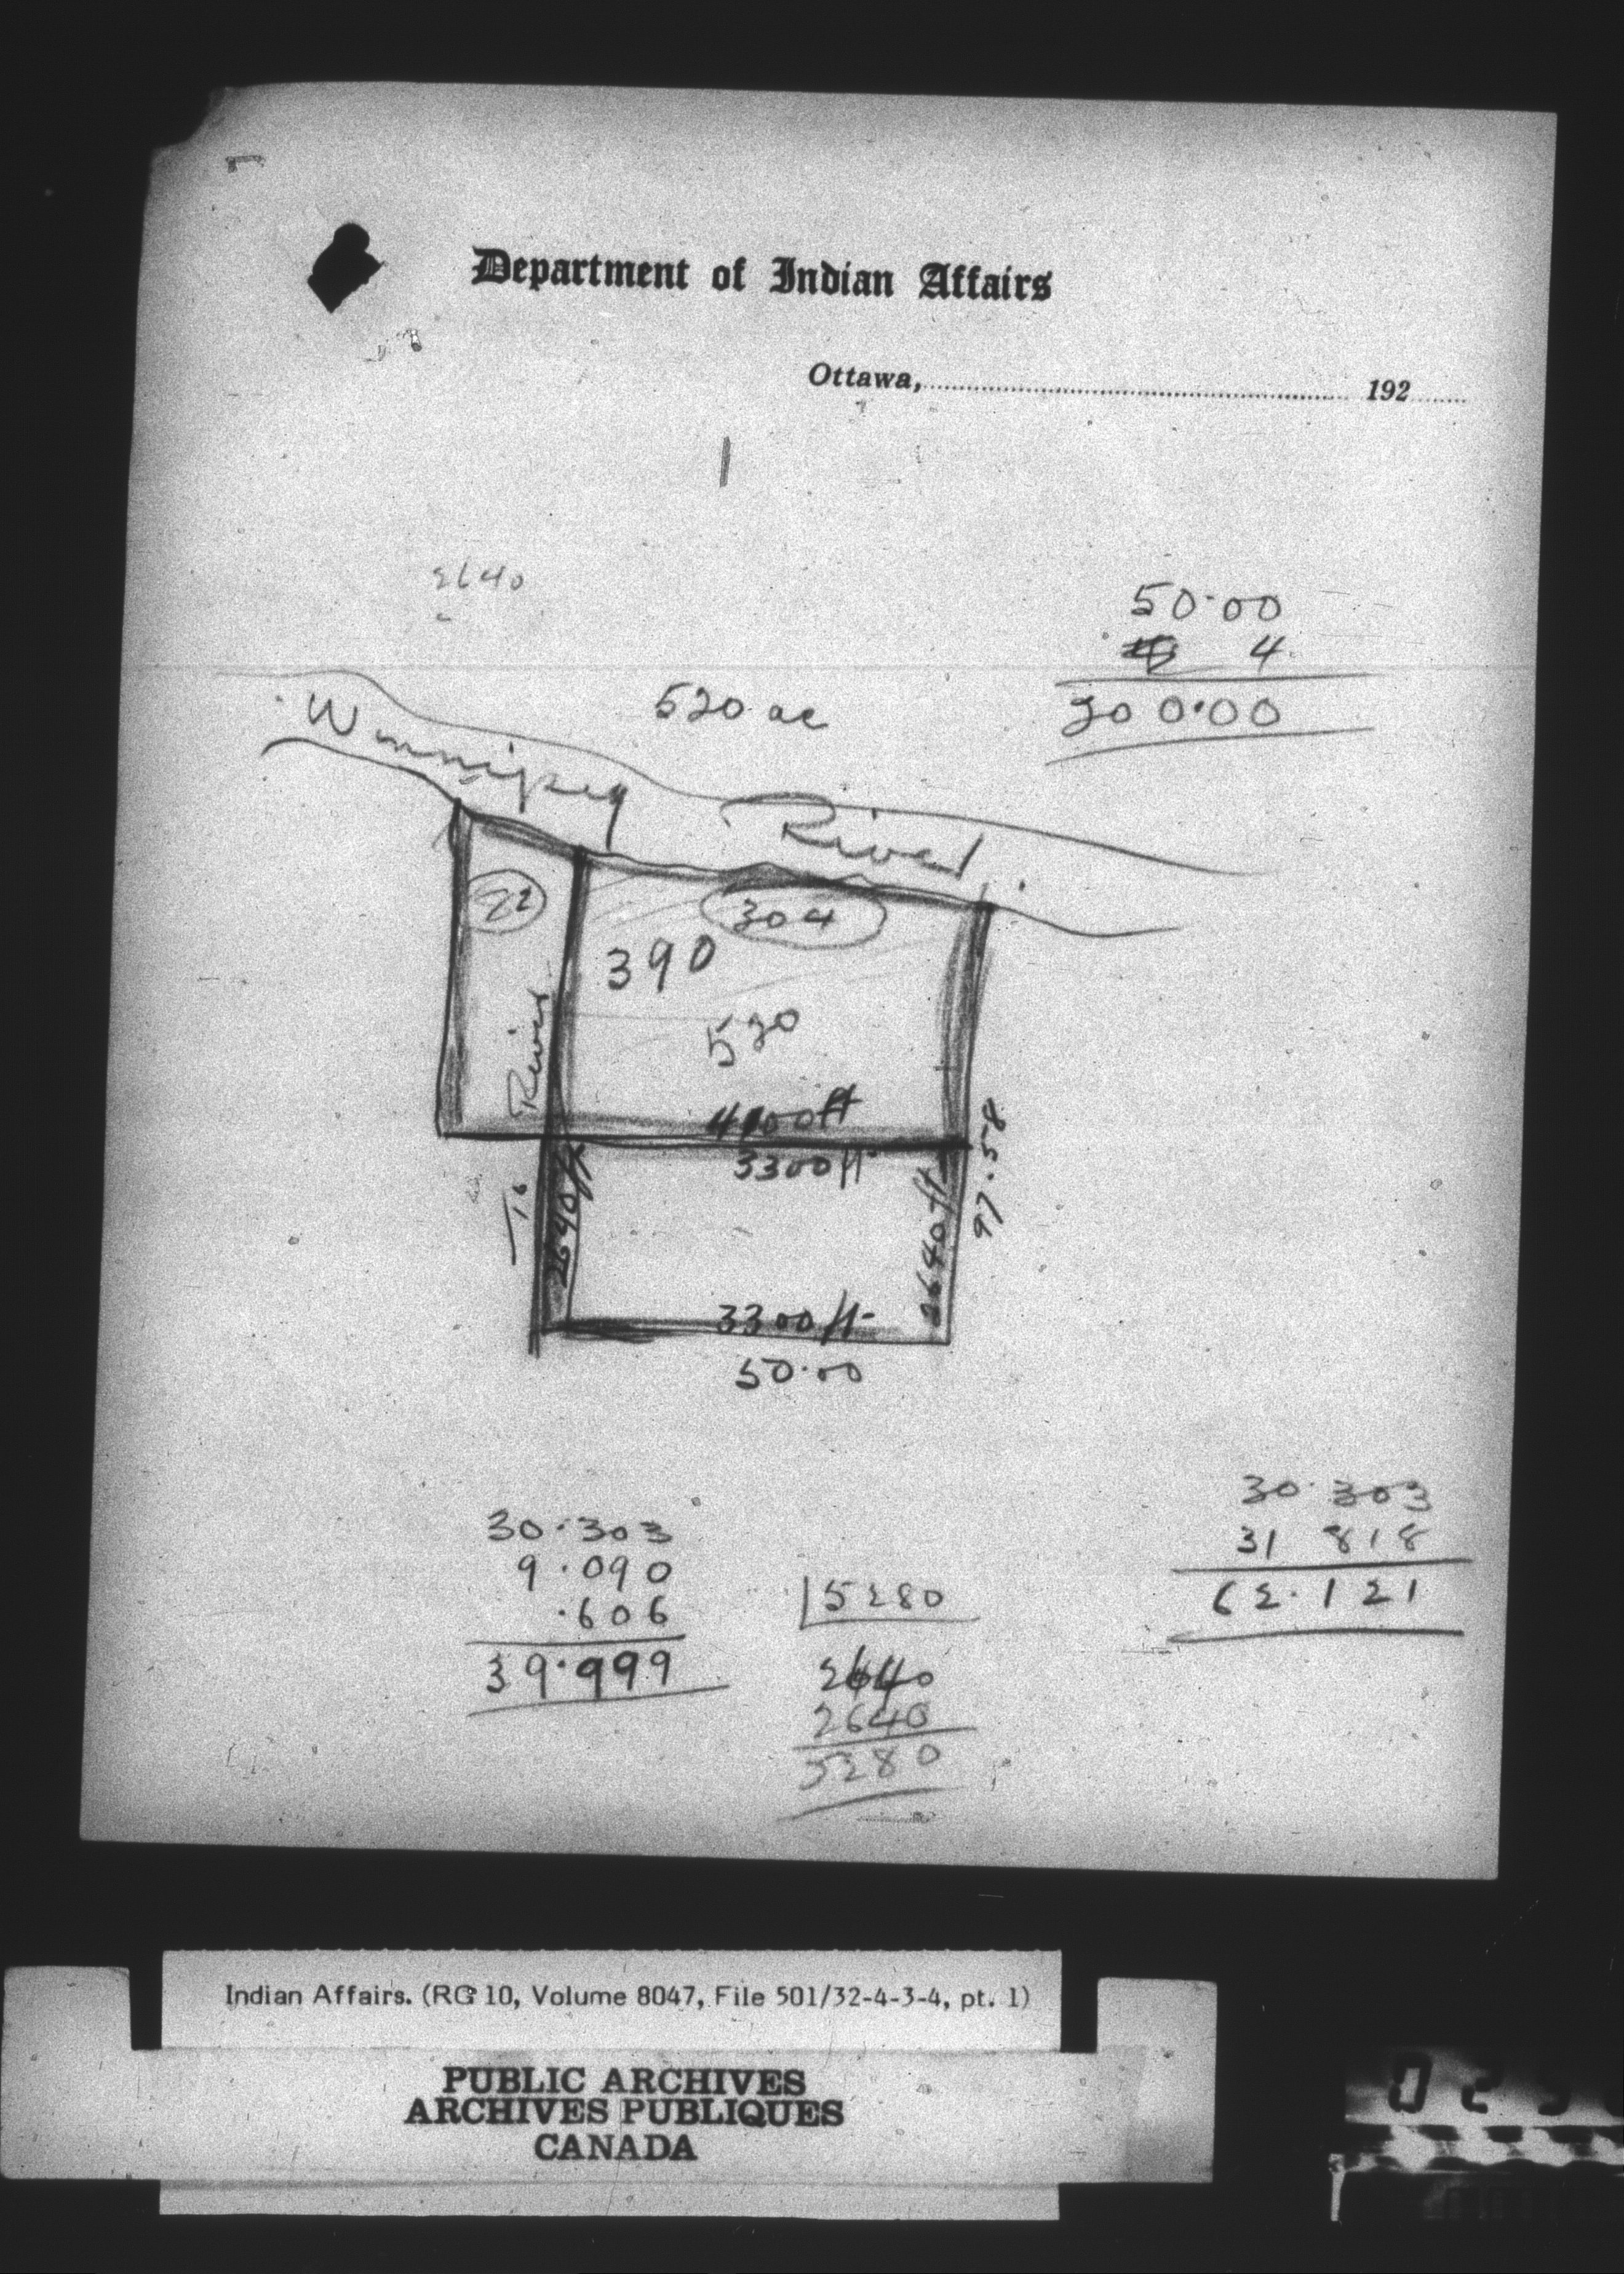 Department of Indian Affairs
Ottawa, 192
2640
50.00
4
200.00
520 ac
Winnipeg River
22
304
390
520
To River
4100 ft
3300 ft
2640 ft
2640 ft
97.58
3300 ft
50.00
30.303
9.090
.606
39.999
5280
2640
2640
5280
30.303
31 818
62.121
Indian Affairs. (RG 10, Volume 8047, File 501/32-4-3-4, pt. 1)
PUBLIC ARCHIVES
ARCHIVES PUBLIQUES
CANADA